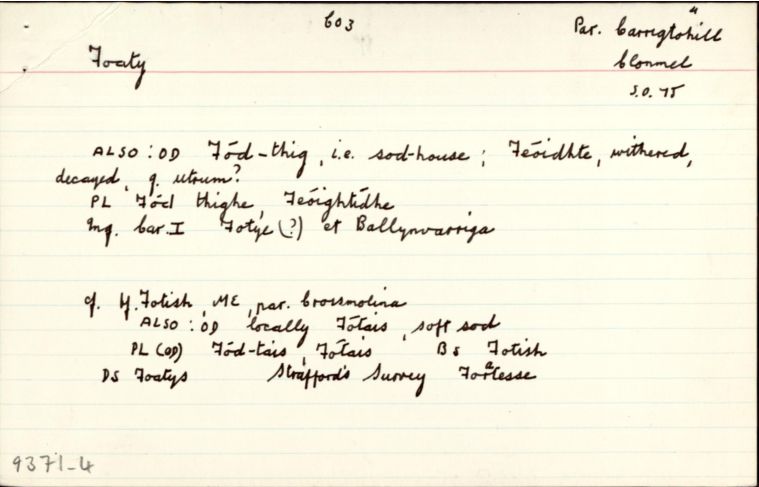 C03
Par. Carrigtohill
Foaty
Clonmel
S.O. 75
ALSO: OD Fód-thig, i.e. sod-house; Feóidhte, withered,
decayed, q. utrum?
PL Fód thighe, Feóightidhe
Inq. Car. I Fotye (?) et Ballynvarriga
cf. Fotish, ME, par. Crossmolina
ALSO: OD locally Fótais, soft sod
PL (OD) Fód-tais, Fótais BS Fotish
DS Foatys Strafford's Survey Foatesse
9371-4